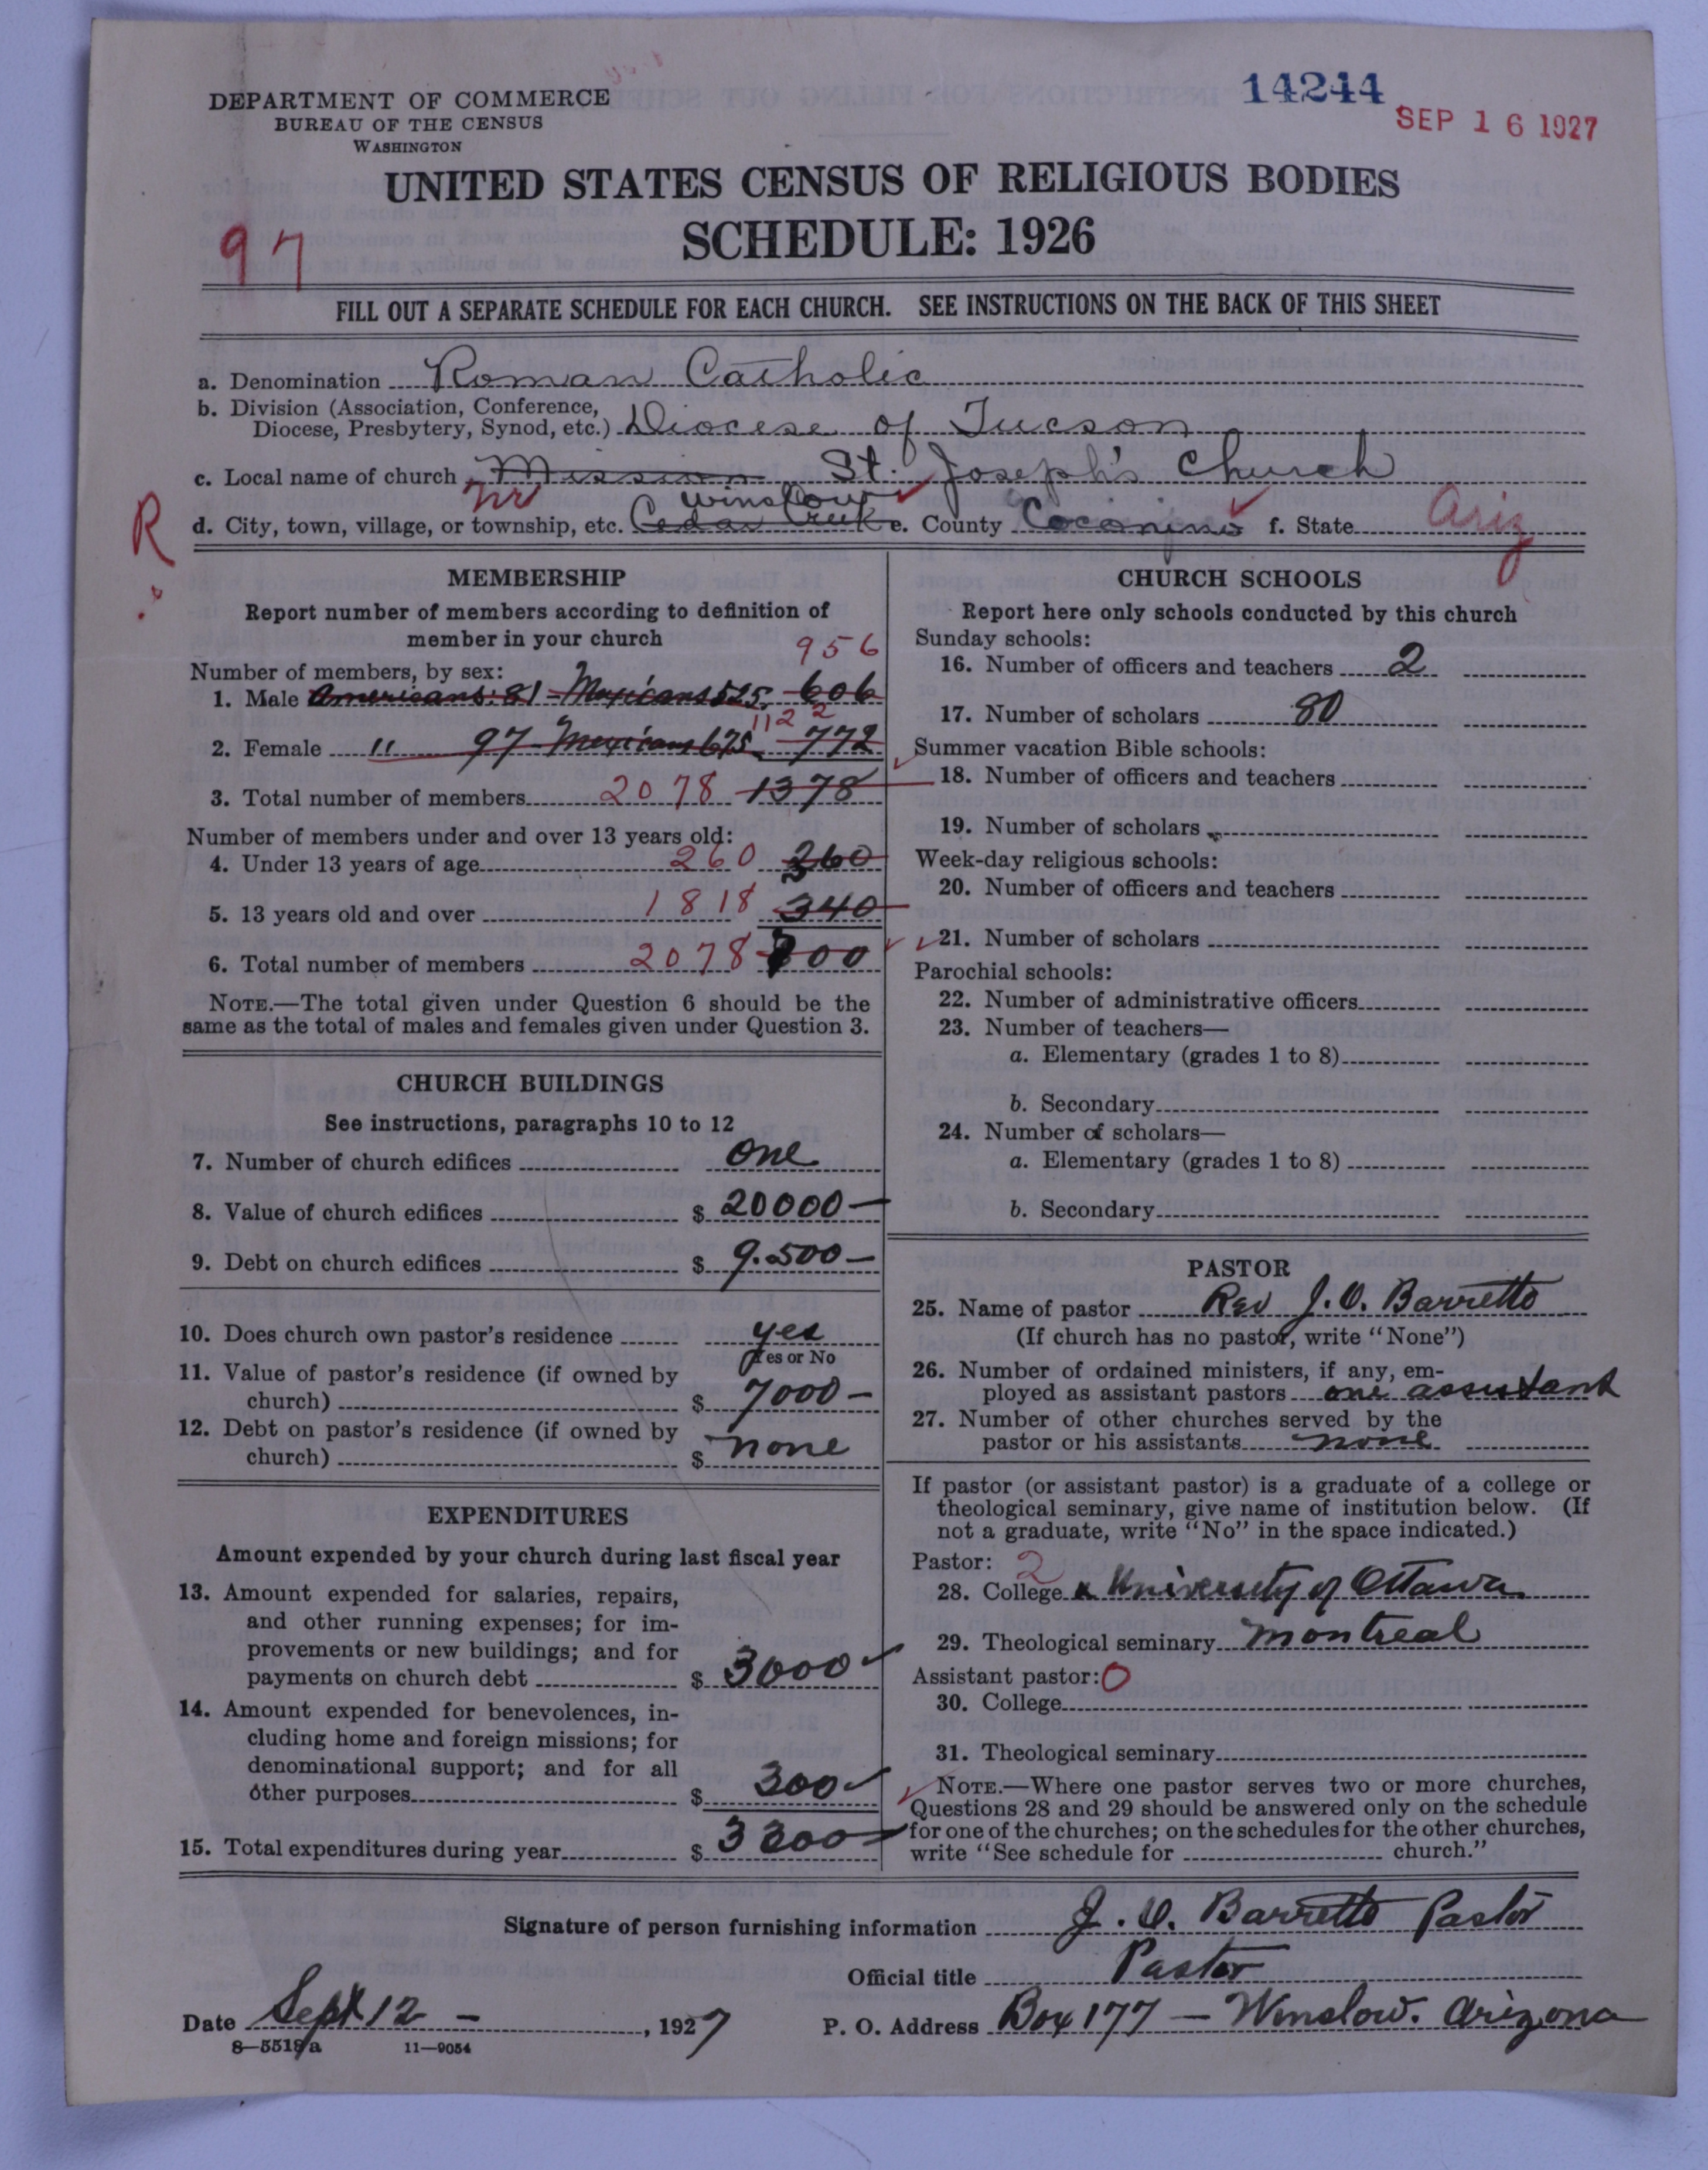 14244
SEP 16 1927
DEPARTMENT OF COMMERCE
BUREAU OF THE CENSUS
WASHINGTON
UNITED STATES CENSUS OF RELIGIOUS BODIES
SCHEDULE: 1926
97
FILL OUT A SEPARATE SCHEDULE FOR EACH CHURCH. SEE INSTRUCTIONS ON THE BACK OF THIS SHEET
a. Denomination Roman Catholic
b. Division (Association, Conference,
Diocese, Presbytery, Synod, etc.) Diocese of Tucson
c. Local name of church Mission St. Joseph's Church
nr Winslow
R
d. City, town, village, or township, etc. Cedar Creek e. County Coconino f. State Ariz
MEMBERSHIP
Report number of members according to definition of
member in your church
956
Number of members, by sex:
1. Male Americans: 81 - Mexicans 525. 606
1122
2. Female " 97 - Mexicans 675 772
3. Total number of members 2078 1378
Number of members under and over 13 years old:
4. Under 13 years of age 260 360
5. 13 years old and over 1818 340
6. Total number of members 2078 700
NOTE.—The total given under Question 6 should be the
same as the total of males and females given under Question 3.
CHURCH BUILDINGS
See instructions, paragraphs 10 to 12
7. Number of church edifices one
8. Value of church edifices $ 20000—
9. Debt on church edifices $ 9.500—
10. Does church own pastor's residence yes
Yes or No
11. Value of pastor's residence (if owned by
church) $ 7000—
12. Debt on pastor's residence (if owned by
church) $ none
EXPENDITURES
Amount expended by your church during last fiscal year
13. Amount expended for salaries, repairs,
and other running expenses; for im-
provements or new buildings; and for
payments on church debt $ 3000—
14. Amount expended for benevolences, in-
cluding home and foreign missions; for
denominational support; and for all
other purposes $ 300
15. Total expenditures during year $ 3300—
CHURCH SCHOOLS
Report here only schools conducted by this church
Sunday schools:
16. Number of officers and teachers 2
17. Number of scholars 80
Summer vacation Bible schools:
18. Number of officers and teachers
19. Number of scholars
Week-day religious schools:
20. Number of officers and teachers
21. Number of scholars
Parochial schools:
22. Number of administrative officers
23. Number of teachers—
a. Elementary (grades 1 to 8)
b. Secondary
24. Number of scholars—
a. Elementary (grades 1 to 8)
b. Secondary
PASTOR
25. Name of pastor Rev J. O. Barrette
(If church has no pastor, write "None")
26. Number of ordained ministers, if any, em-
ployed as assistant pastors one assistant
27. Number of other churches served by the
pastor or his assistants none
If pastor (or assistant pastor) is a graduate of a college or
theological seminary, give name of institution below. (If
not a graduate, write "No" in the space indicated.)
Pastor: 2
28. College University of Ottawa
29. Theological seminary Montreal
Assistant pastor: 0
30. College
31. Theological seminary
NOTE.—Where one pastor serves two or more churches,
Questions 28 and 29 should be answered only on the schedule
for one of the churches; on the schedules for the other churches,
write "See schedule for church."
Signature of person furnishing information J. O. Barrette Pastor
Official title Pastor
Date Sept 12 —, 1927
P. O. Address Box 177 — Winslow. Arizona
8—5518a 11—9054